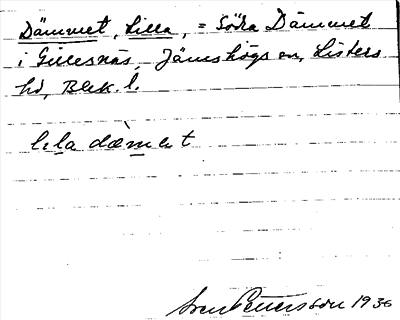 Dämmet, Lilla, = Södra Dämmet
i Gillesnäs, Jämshögs sn, Listers
hd, Blek. l.
lila dæmet
Sven Pettersson 1936